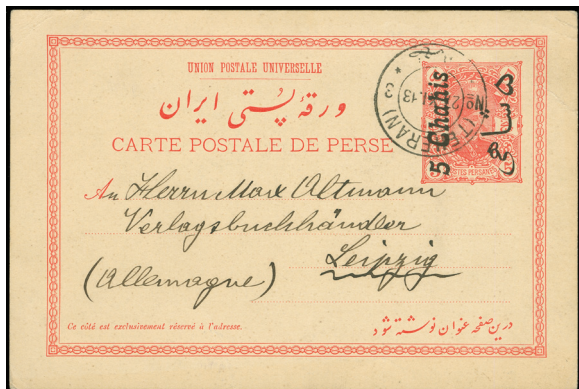 UNION POSTALE UNIVERSELLE
ورقهٔ پستی ایران
CARTE POSTALE DE PERSE
5 Chahis
POSTES PERSANES
TEHERAN
An Herrn Max Altmann
Verlagsbuchhändler
Leipzig
(Allemagne)
Ce côté est exclusivement réservé à l'adresse.
درین صفحه عنوان نوشته شود